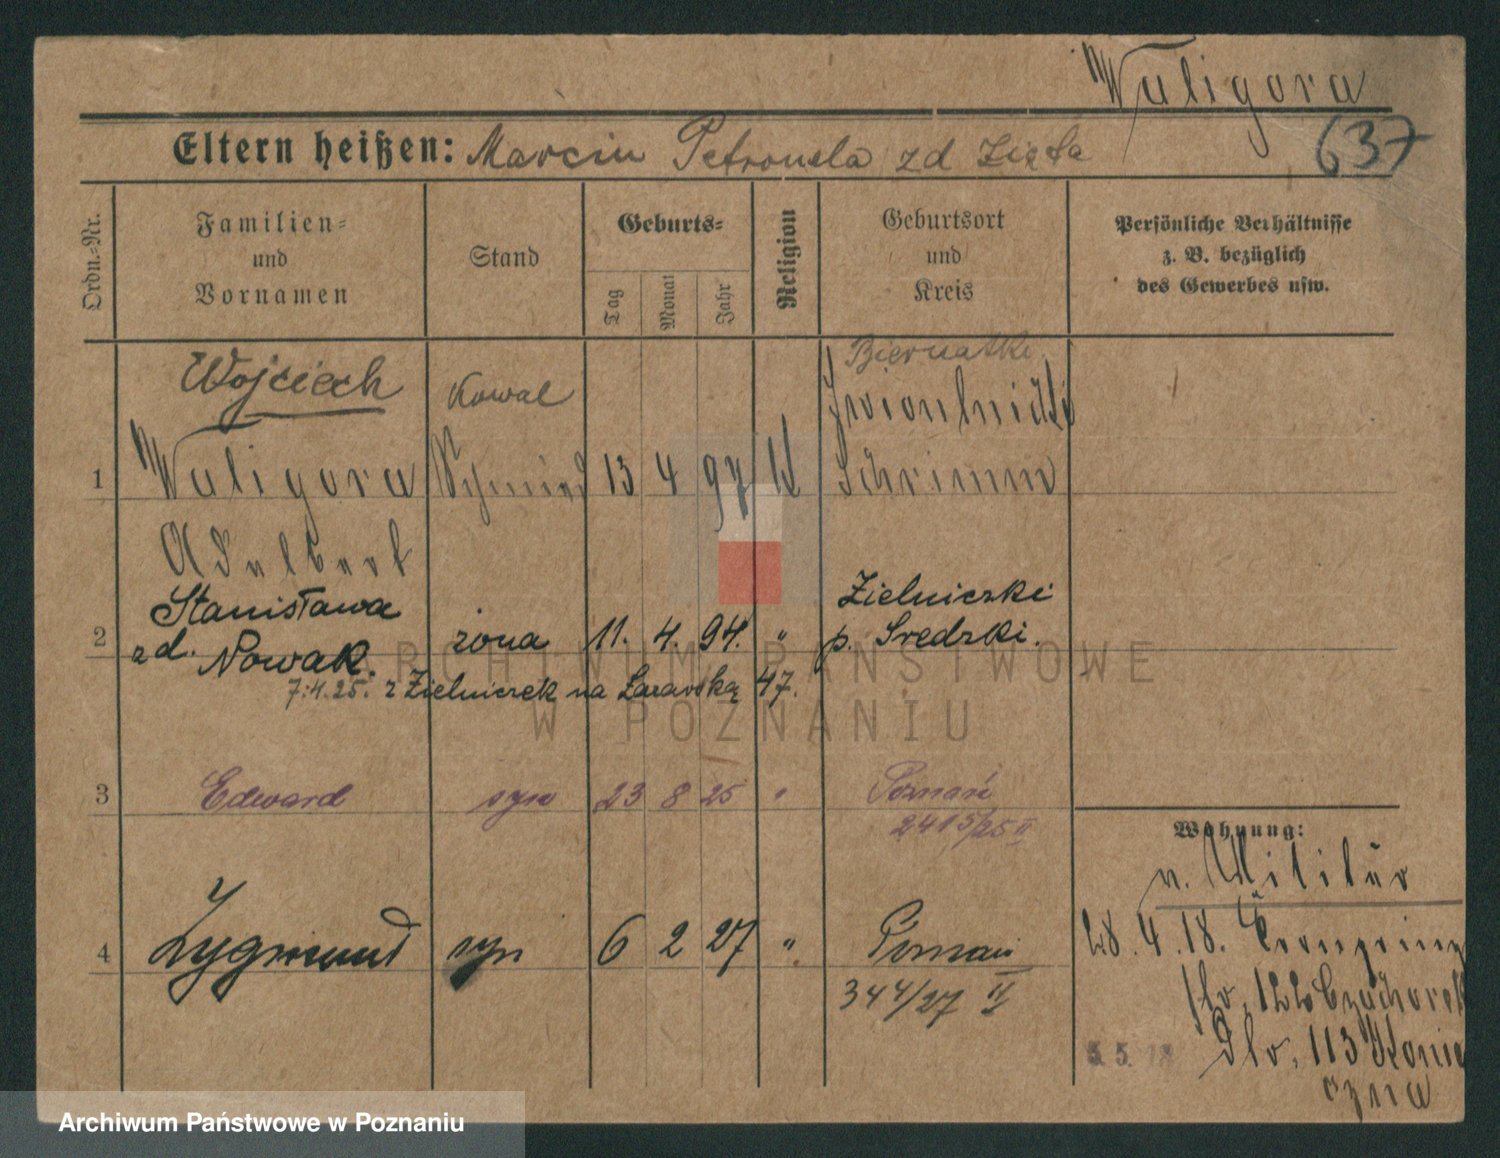 Waligora
637
Eltern heißen: Marcin Petronela zd Zięta
Ordn.-Nr.
Familien-
und
Vornamen
Stand
Geburts-
Tag
Monat
Jahr
Religion
Geburtsort
und
Kreis
Persönliche Verhältnisse
z. B. bezüglich
des Gewerbes usw.
Biernatki
Wojciech kowal
1 Waligora Schmied 13 4 97 Schrimm
Adalbert
Stanisława Zielniczki
2 zd. Nowak. żona 11. 4. 94. " p. Sredzki.
7.4.25. z Zielniczek na Łazarską 47.
ARCHIWUM PAŃSTWOWE
W POZNANIU
3 Edward syn 23 8 25 " Poznań
2415/25 II
Wohnung:
v. Militär
28.4.18. Kronprinz
4 Zygmunt syn 6 2 27 " Poznań
344/27 II
str. 122
5.5.18 113
Archiwum Państwowe w Poznaniu